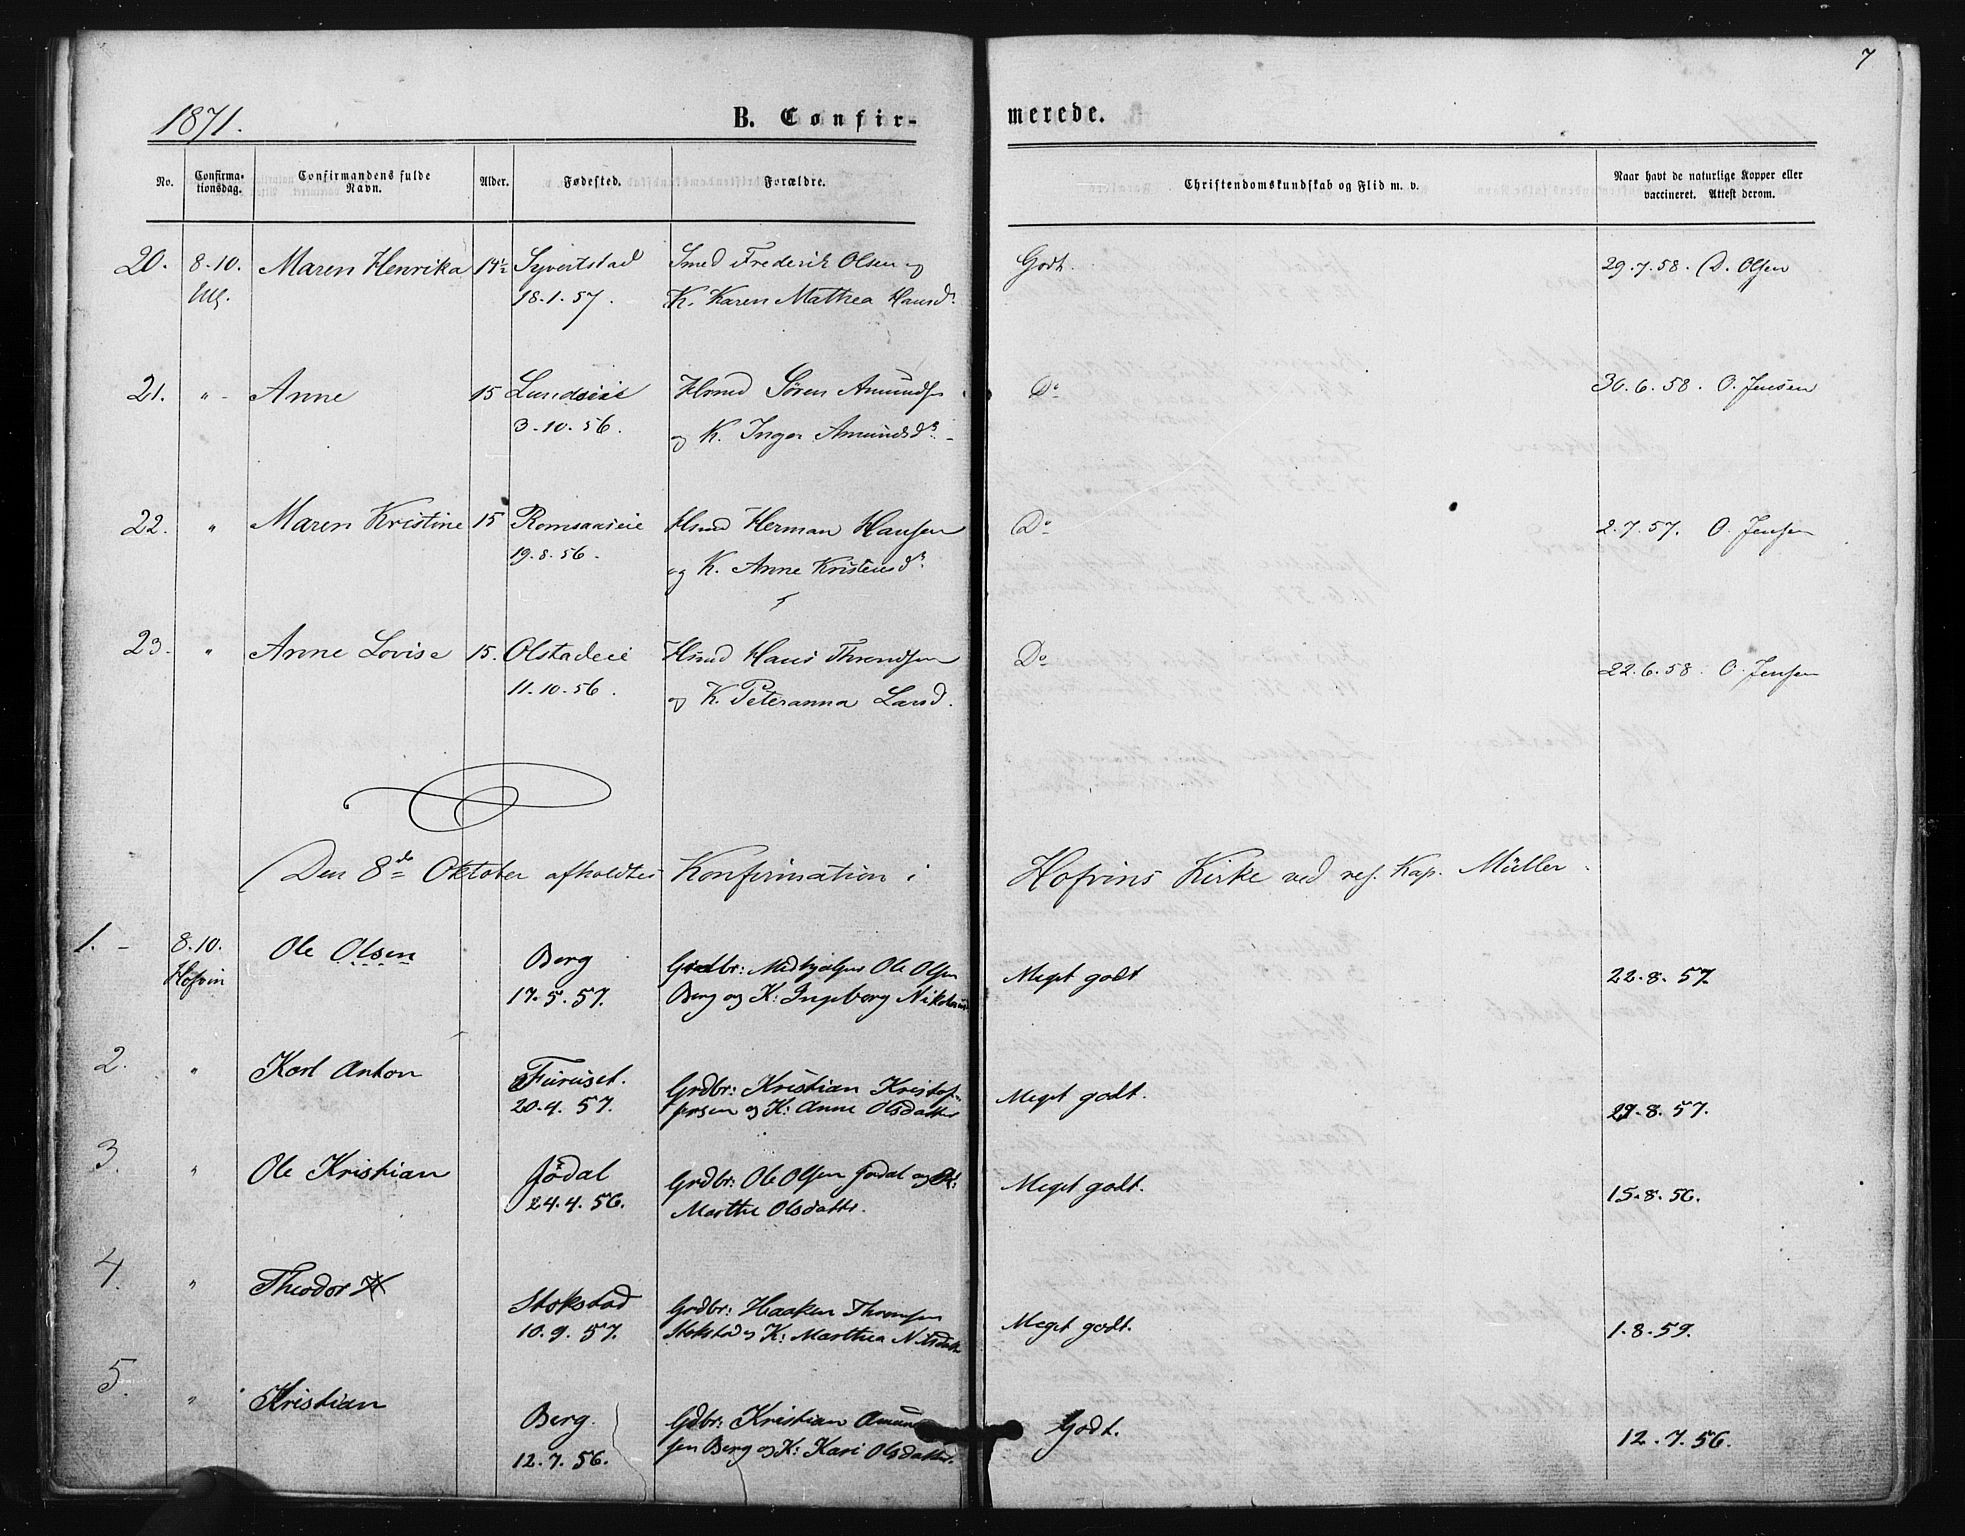 7
1871.
B. Confir-
merede.
No.
Confirma-
tionsdag.
Confirmandens fulde
Navn.
Alder.
Fødested.
Forældre.
Christendomskundskab og Flid m. v.
Naar havt de naturlige Kopper eller
vaccineret. Attest derom.
20. 8-10. Maren Henrika 14½ Syvertstad Smed Frederik Olsen og Godt. 29.7.58. D. Olsen
Ull. 18.1.57. K. Karen Mathea Hansd.
21. " Anne 15 Lundseie Hsmd Søren Amunds Do 30.6.58. O. Jensen
3-10.56. og K. Inger Amundsd.
22. " Maren Kristine 15 Romsaaseie Hsmd Herman Hansen Do 2.7.57. O. Jensen
19.8.56. og K. Anne Kristensd.
23. " Anne Lovise 15. Olstadeie Hsmd Hans Throndsen Do 22.6.58. O. Jensen
11.10.56. og K. Peteranna Larsd.
Den 8de Oktober afholdtes Konfirmation i Hofvins Kirke ved res. Kap. Müller.
1. 8.10. Ole Olsen Berg Grdbr: Medhjælper Ole Olsen Meget godt 22.8.57.
Hofvin 17.5.57. Berg og K: Ingeborg
2. " Karl Anton Furuset. Grdbr: Kristian Kristof- Meget godt. 29.8.57.
20.4.57. fersen og K: Anne Olsdatter
3. " Ole Kristian Jødal Grdbr: Ole Olsen Jødal og K: Meget godt. 15.8.56.
24.4.56. Marthe Olsdatter.
4. " Theodor Stokstad Grdbr: Haaken Meget godt. 1.8.59.
10.9.57. Stokstad og K: Marthea Nilsdatt
5. " Kristian Berg. Gdbr: Kristian Amun Godt. 12.7.56.
12.7.56. sen Berg og K: Kari Olsdatter.